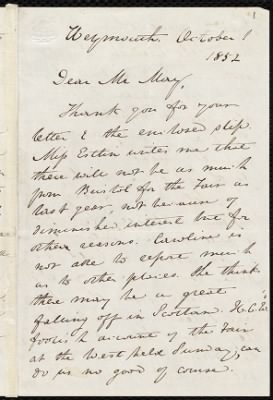 Weymouth. October 1
1852
Dear Mr May,
Thank you for your
letter & the enclosed slip.
Miss Estlin writes me that
there will not be as much
from Bristol for the Fair as
last year, not because of
diminished interest but for
other reasons. Caroline is
not able to report much
as to other places. She thinks
there may be a great
falling off in Scotland. H. C.
foolish account of the Fair
at the West held Sunday, can
do us no good of course.